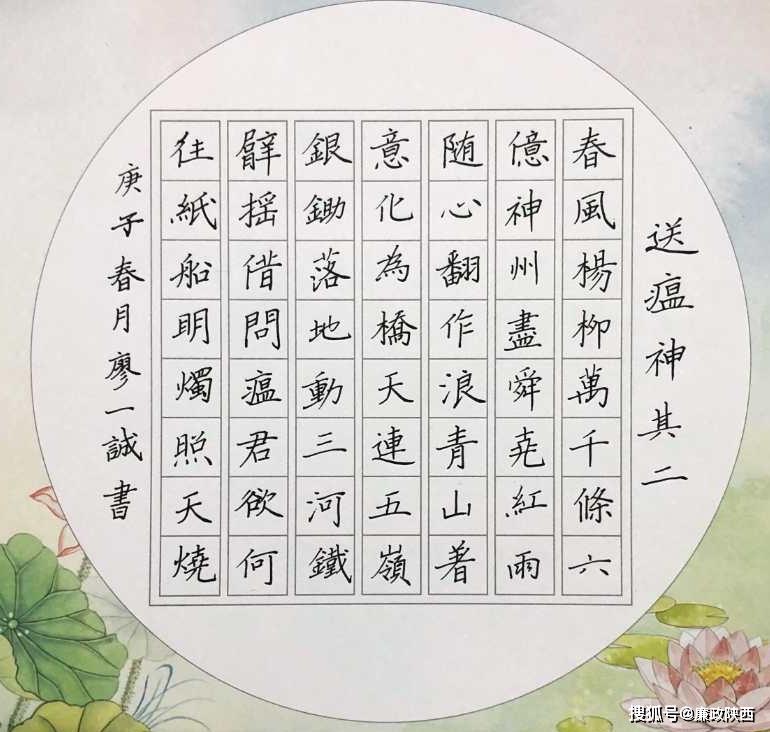 送瘟神其二
春風楊柳萬千條六
億神州盡舜尭紅雨
随心翻作浪青山著
意化為橋天連五嶺
銀鋤落地動三河鐵
臂揺借問瘟君欲何
往紙船明燭照天燒
庚子春月廖一誠書
搜狐号@廉政陕西